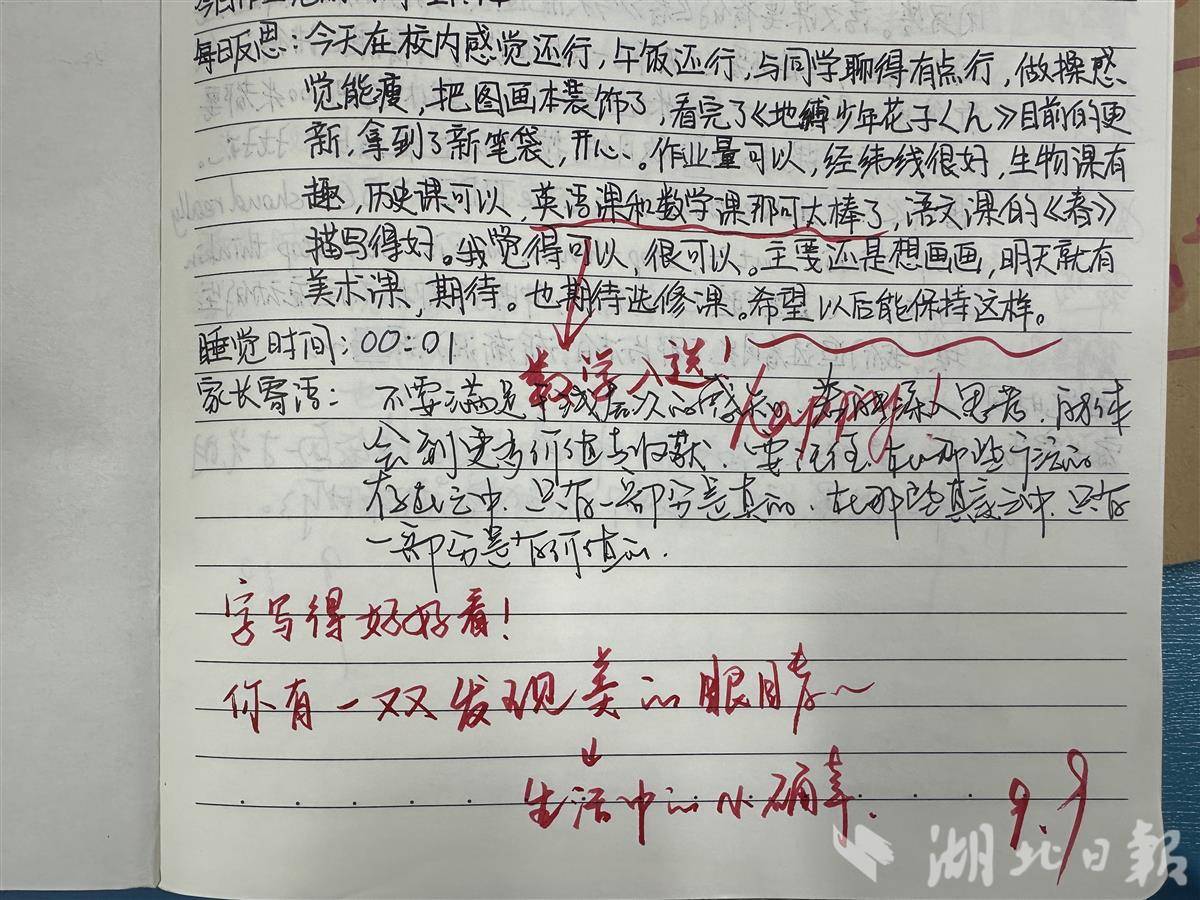 每日反思：今天在校内感觉还行，午饭还行，与同学聊得有点行，做操感
觉能瘦，把图画本装饰了，看完了《地缚少年花子くん》目前的更
新，拿到了新笔袋，开心、。作业量可以，经纬线很好，生物课有
趣，历史课可以，英语课和数学课那可太棒了，语文课的《春》
描写得好。我觉得可以，很可以。主要还是想画画，明天就有
美术课，期待。也期待选修课。希望以后能保持这样。
睡觉时间：00:01
数学入选！
happy!
家长寄语： 不要满足于浅层次的感知，养成深入思考，
会到更多价值与收获，要记住，在那些言论的
存在之中，只有一部分是真的，在那些真实之中，只有
一部分是有价值的.
字写得好好看！
你有一双发现美的眼睛～
生活中的小确幸.
9.9
湖北日報